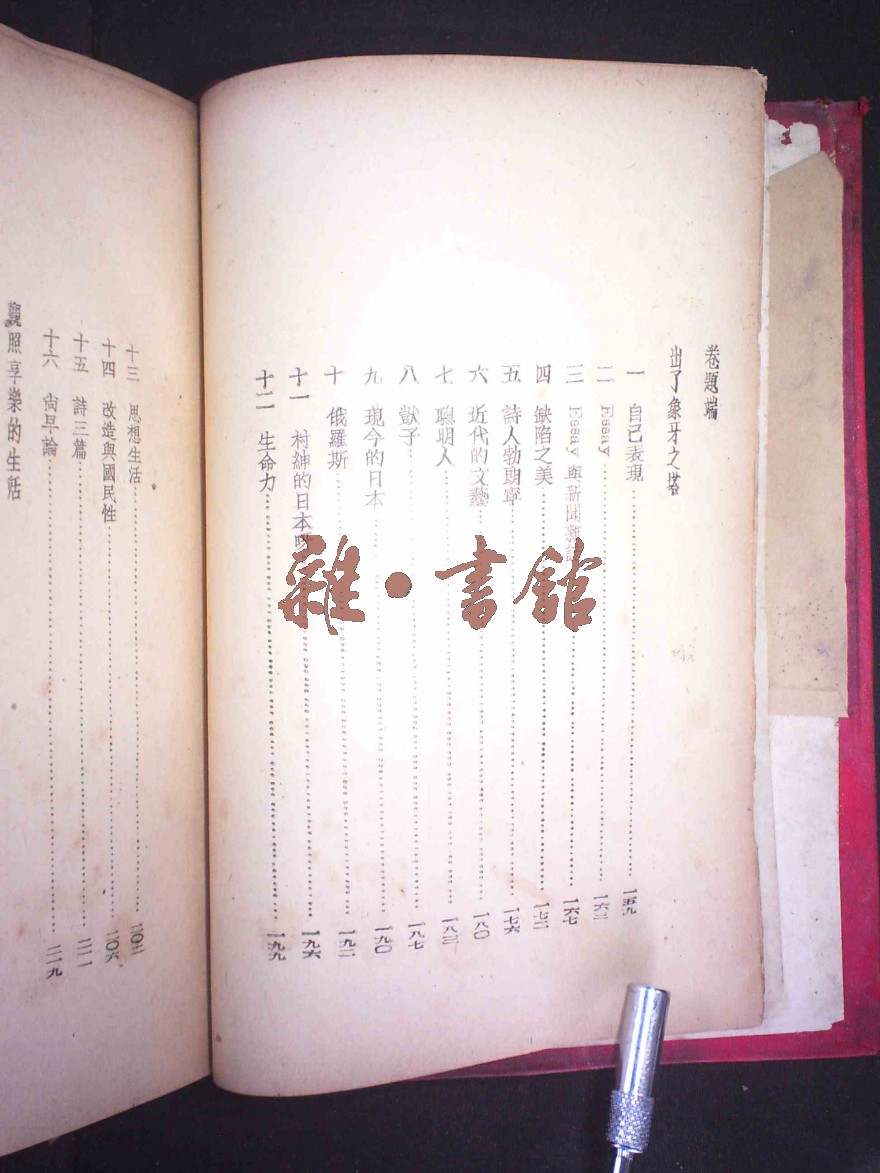 卷題端
出了象牙之塔
一 自己表現……一五九
二 Essay……一六二
三 Essay 與新聞雜誌……一六七
四 缺陷之美……一七二
五 詩人勃朗寧……一七六
六 近代的文藝……一八〇
七 聰明人……一八三
八 獃子……一八七
九 現今的日本……一九〇
十 俄羅斯……一九二
十一 村紳的日本呀……一九六
十二 生命力……一九九
十三 思想生活……二〇二
十四 改造與國民性……二〇六
十五 詩三篇……二一一
十六 尙早論……二一九
觀照享樂的生活
雜·書館